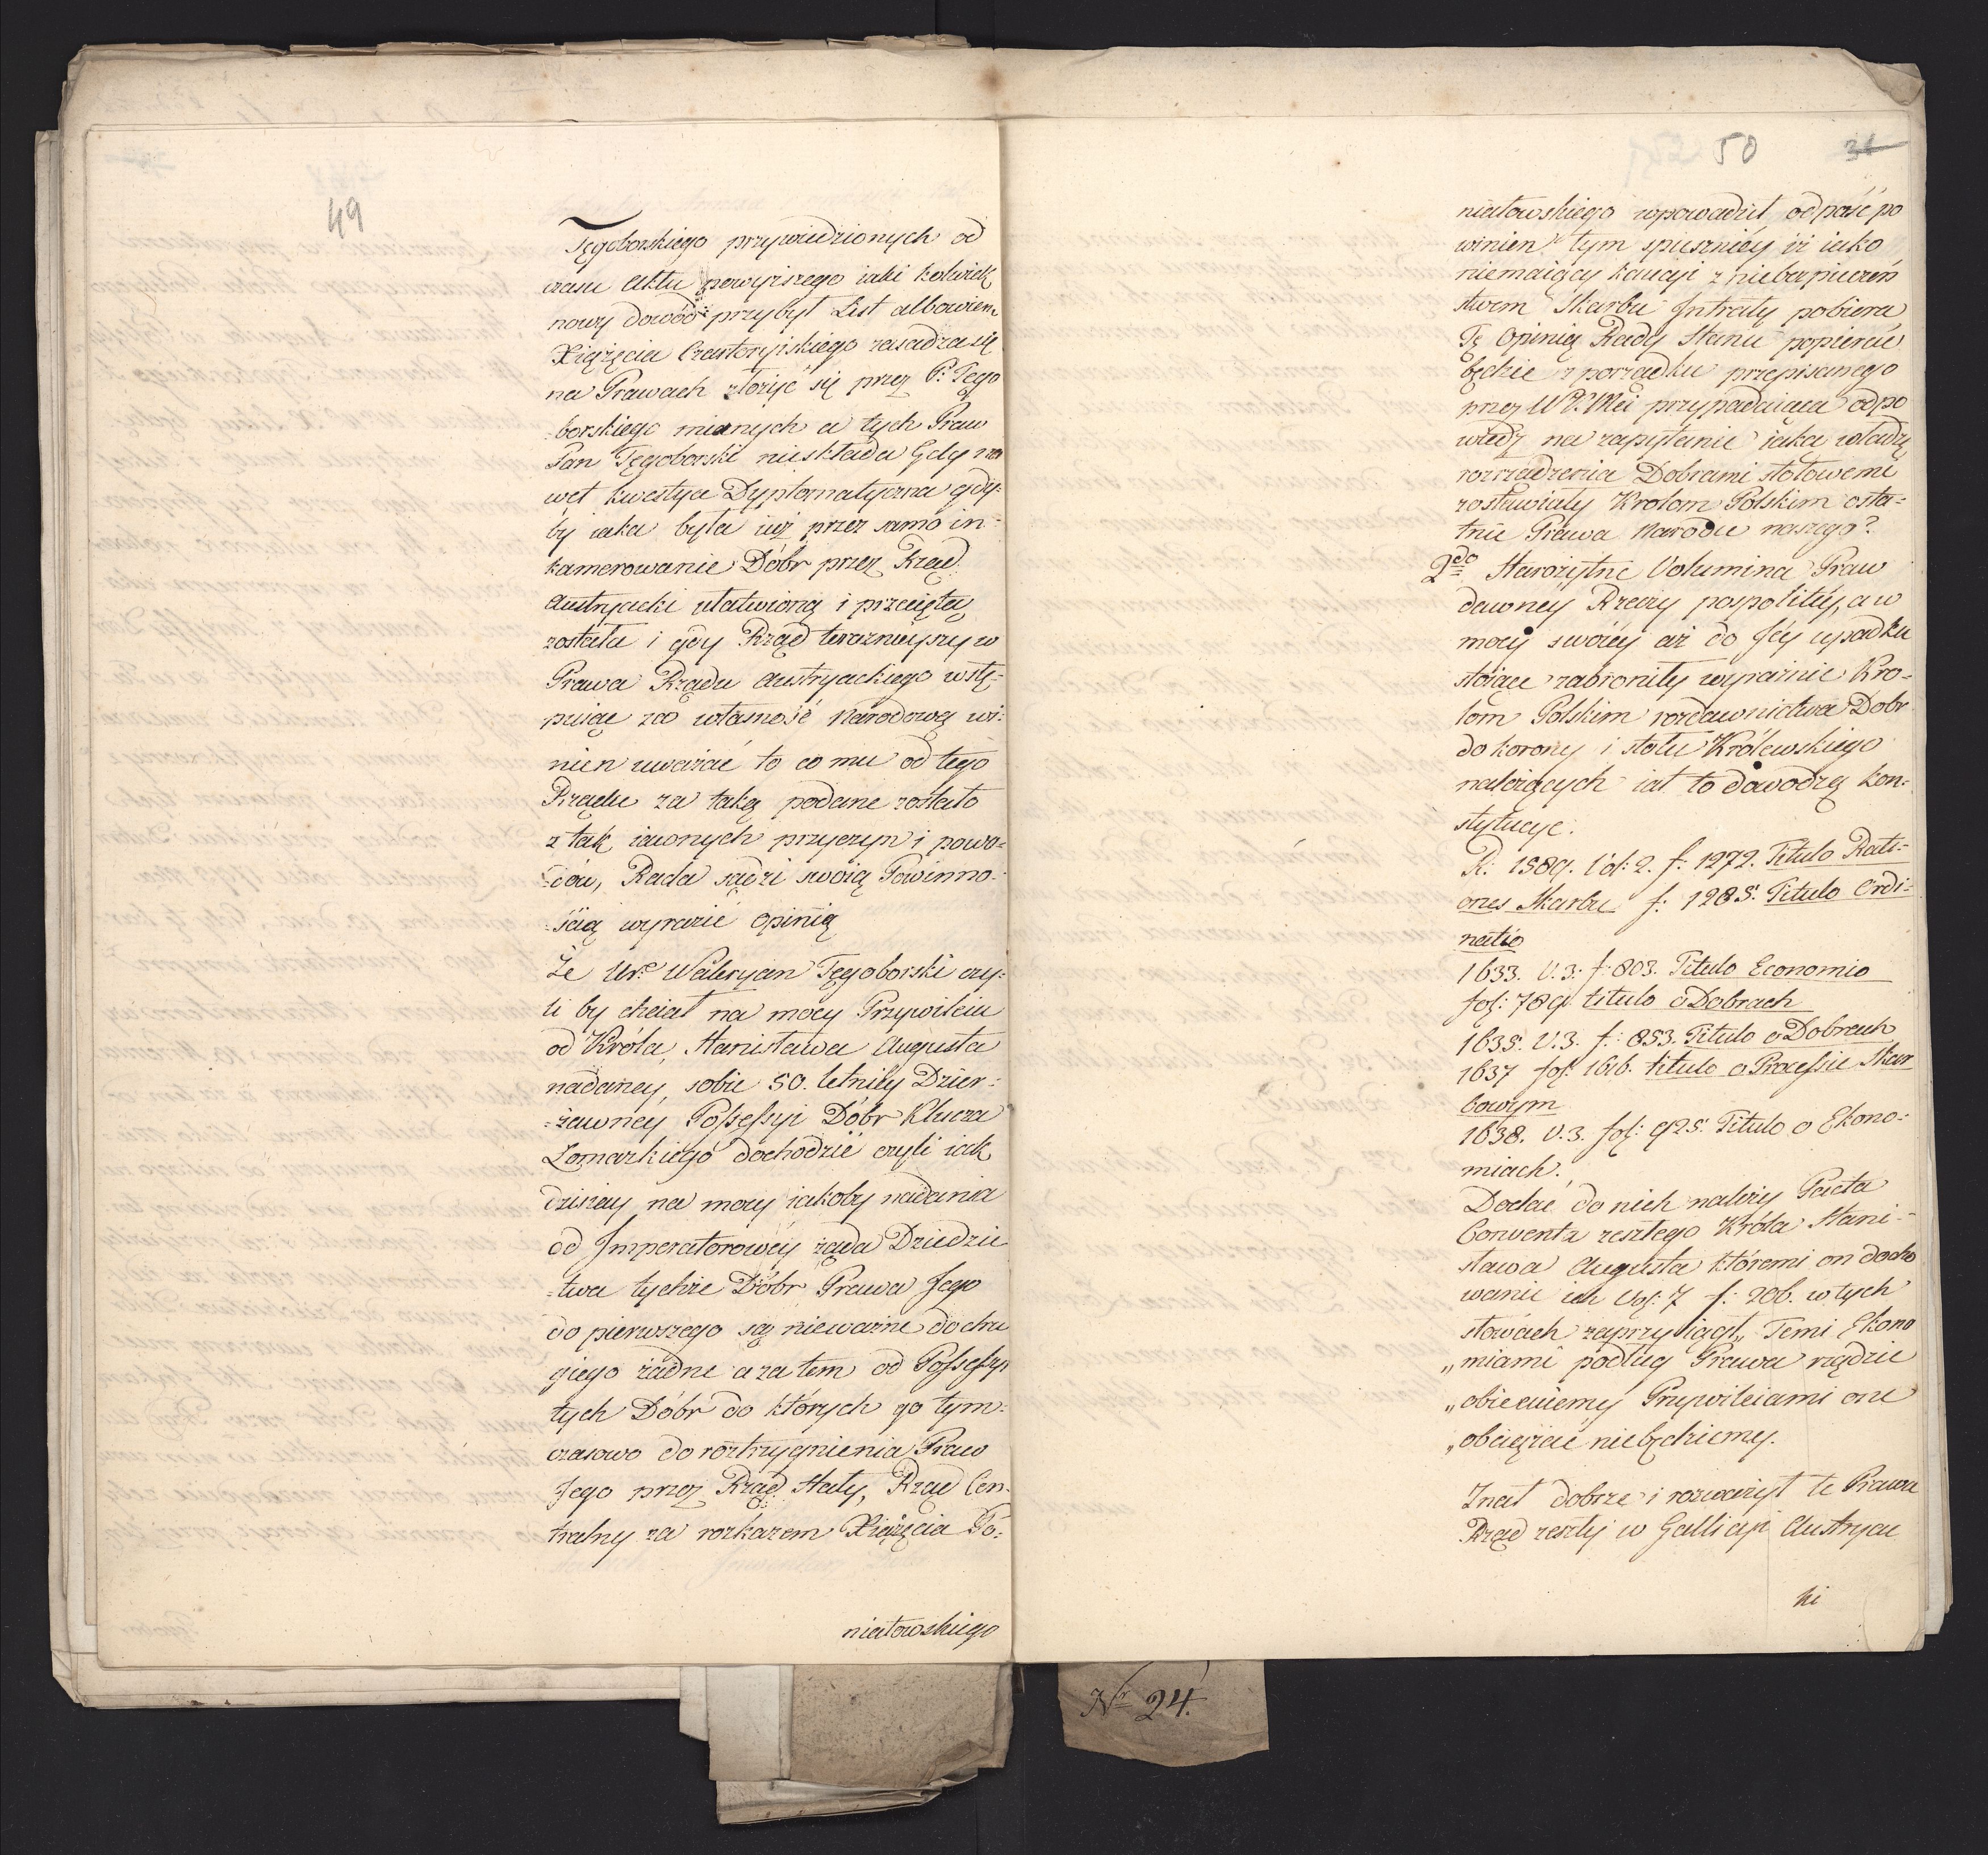 49
Tęgoborskiego przywiedzionych od
czasu Aktu powyiszego iaki kolwiek
nowy dowód przybył List albowiem
Xiążęcia Czartoryiskiego zasadza się
na Prawach złożyć się przez P: Tęgo
-borskiego mianych a tych Praw
Pan Tęgoborski nieskłada Gdy na
wet kwestya Dyplomatyczna gdy-
by iaka była iuż przez samo in-
kamerowanie Dóbr przez Rząd
Austryacki ułatwioną i przeciętą
została i gdy Rząd teraznieyszy w
Prawa Rządu Austryackiego wstę-
puiąc za własność Narodową wi-
nien uważać to co mu od tego
Rządu za taką podane zostało
z tak iawnych przyczyn i powo-
-dów, Rada sądzi swoią Powinno-
-ścią wyrazić opinią
Że Ur: Waleryan Tęgoborski czy-
li by chciał na mocy Przywileiu
od Króla Stanisława Augusta
nadaney sobie 50. letniey Dzier-
-żawney Possessyi Dóbr Klucza
Łomazkiego dochodzić czyli iak
dzisiay na mocy iakoby nadania
od Imperatorowey żąda Dziedzic
-twa tychże Dóbr Prawa Jego
do pierwszego są nieważne do dru
giego żadne a zatem od Possessyi
tych Dóbr do których go tym-
czasowo do rostrzygnienia Praw
Jego przez Rząd Stały, Rząd Cen-
tralny za rozkazem Xiążęcia Po-
niatowskiego
50 31
niatowskiego wprowadził odpaść po
winien tym spieszniey iż iako
niemaiący kaucyi z niebezpieczeń
stwem Skarbu Intraty pobiera
Tę Opinię Rady Stanu popierać
będzie z porządku przepisanego
przez WKMci przypadaiąca odpo
wiedz na zapytanie iaką władzę
rozrządzenia Dobrami stołowemi
zostawiały Krolom Polskim osta-
tnie Prawa Narodu naszego?
2do Starożytne Volumina Praw
dawney Rzeczy pospolitey, a w
mocy swoiey aż do Jey upadku
stoiące zabroniły wyraźnie Kro-
lom Polskim rozdawnictwa Dobr
do korony i stołu Królewskiego
należących iak to dowodzą kon-
stytucye.
R: 1589. Vol: 2. f: 1272. Titulo Rati-
ones Skarbu f: 1285. Titulo Ordi-
natio
1633. V. 3. f: 803. Titulo Economio
fol: 789 titulo o Dobrach
1635. V. 3. f: 853. Titulo o Dobrach
1637 fol: 1616. titulo o Processie Skar
bowym
1638. V. 3. fol: 925. Titulo o Ekono-
miach.
Dodać do nich należy Pacta
Conventa zeszłego Króla Stani-
sława Augusta któremi on docho
wanie ich Vol: 7 f: 206. w tych
słowach zaprzysiągł „Temi Ekono
„miami podług Prawa rządzić
„obiecuiemy Przywileiami one
„obciążać niebędziemy.
Znał dobrze i rozważył te Prawa
Rząd zeszły w Gallicyi Austryac
ki
Nr 24.